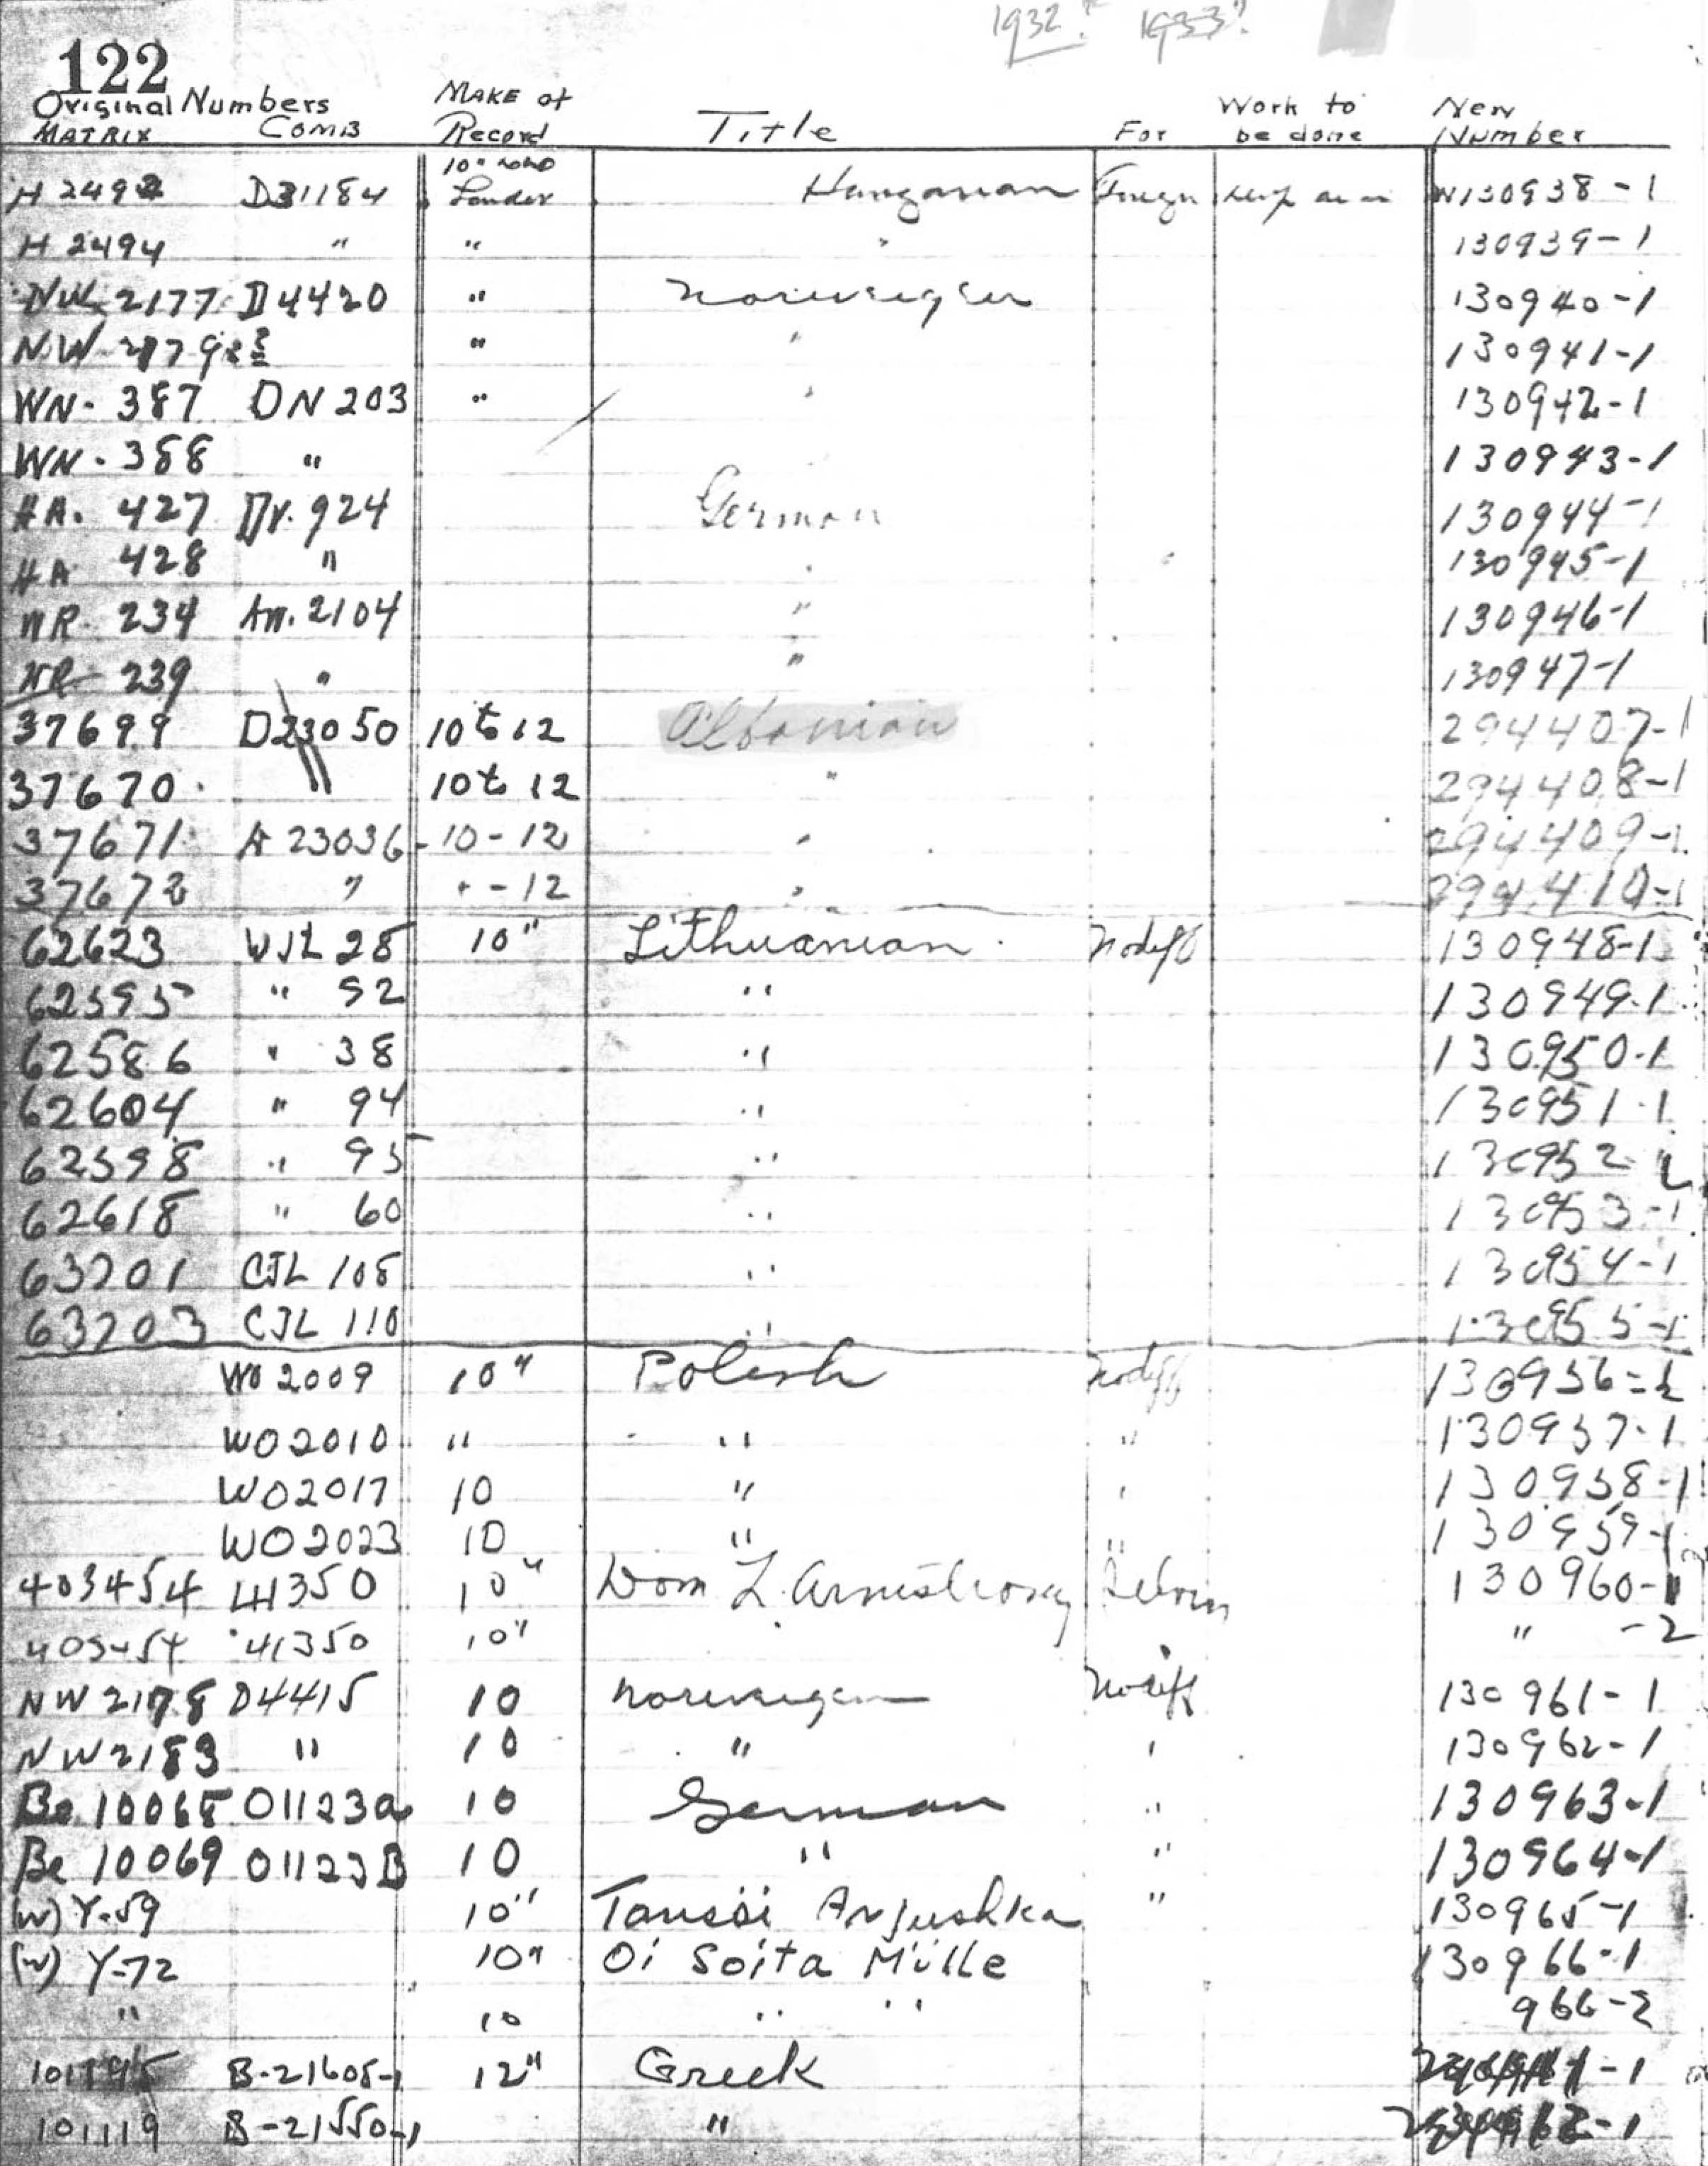 1932? 1933?
122
Original Numbers MAKE of Work to New
MATRIX COMB Record Title For be done Number
10"
H 2493 D31184 Hungarian Foreign W130938-1
H 2494 " " " 130939-1
NW 2177 D4420 " Norwegian 130940-1
NW 2179 " " 130941-1
WN-387 DN203 " " 130942-1
WN-388 " 130943-1
HA. 427 924 German 130944-1
HA 428 " " 130945-1
WR 234 2104 " 130946-1
239 " " 130947-1
37699 D23050 10 to 12 Albanian 294407-1
37670 " 10 to 12 " 294408-1
37671 A 23036 -10-12 " 294409-1
37672 " " -12 " 294410-1
62623 WJL 28 10" Lithuanian 130948-1
62595 " 52 " 130949-1
62586 " 38 " 130950-1
62604 " 94 " 130951-1
62598 " 95 " 130952
62618 " 60 " 130953-1
63201 CJL 108 " 130954-1
63203 CJL 110 " 130955-1
WO 2009 10" Polish 130956
WO2010 " " " 130957-1
WO2017 10 " " 130958-1
WO2023 10 " " 130959-1
403454 41350 10" L. Armstrong 130960-1
41350 10" " -2
NW 2178 D4415 10 Norwegian 130961-1
NW 2183 " 10 " " 130962-1
Be 10068 01123a 10 German " 130963-1
Be 10069 01123B 10 " " 130964-1
(w) Y-59 10" Tanssi Anjushka " 130965-1
(w) Y-72 10" Oi Soita Mulle 130966-1
" 10 " " 966-2
B-21605-1 12" Greek -1
101119 B-21550-1 " -1